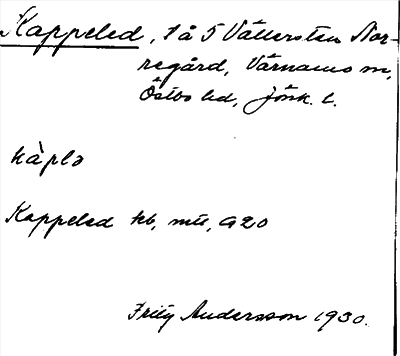 Kappeled, 1 å 5 Vällersten Nor-
regård, Värnamo sn,
Östbo hd, Jönk. l.
kàplə
Kappeled kb, mtl, G20
Fritz Andersson 1930.